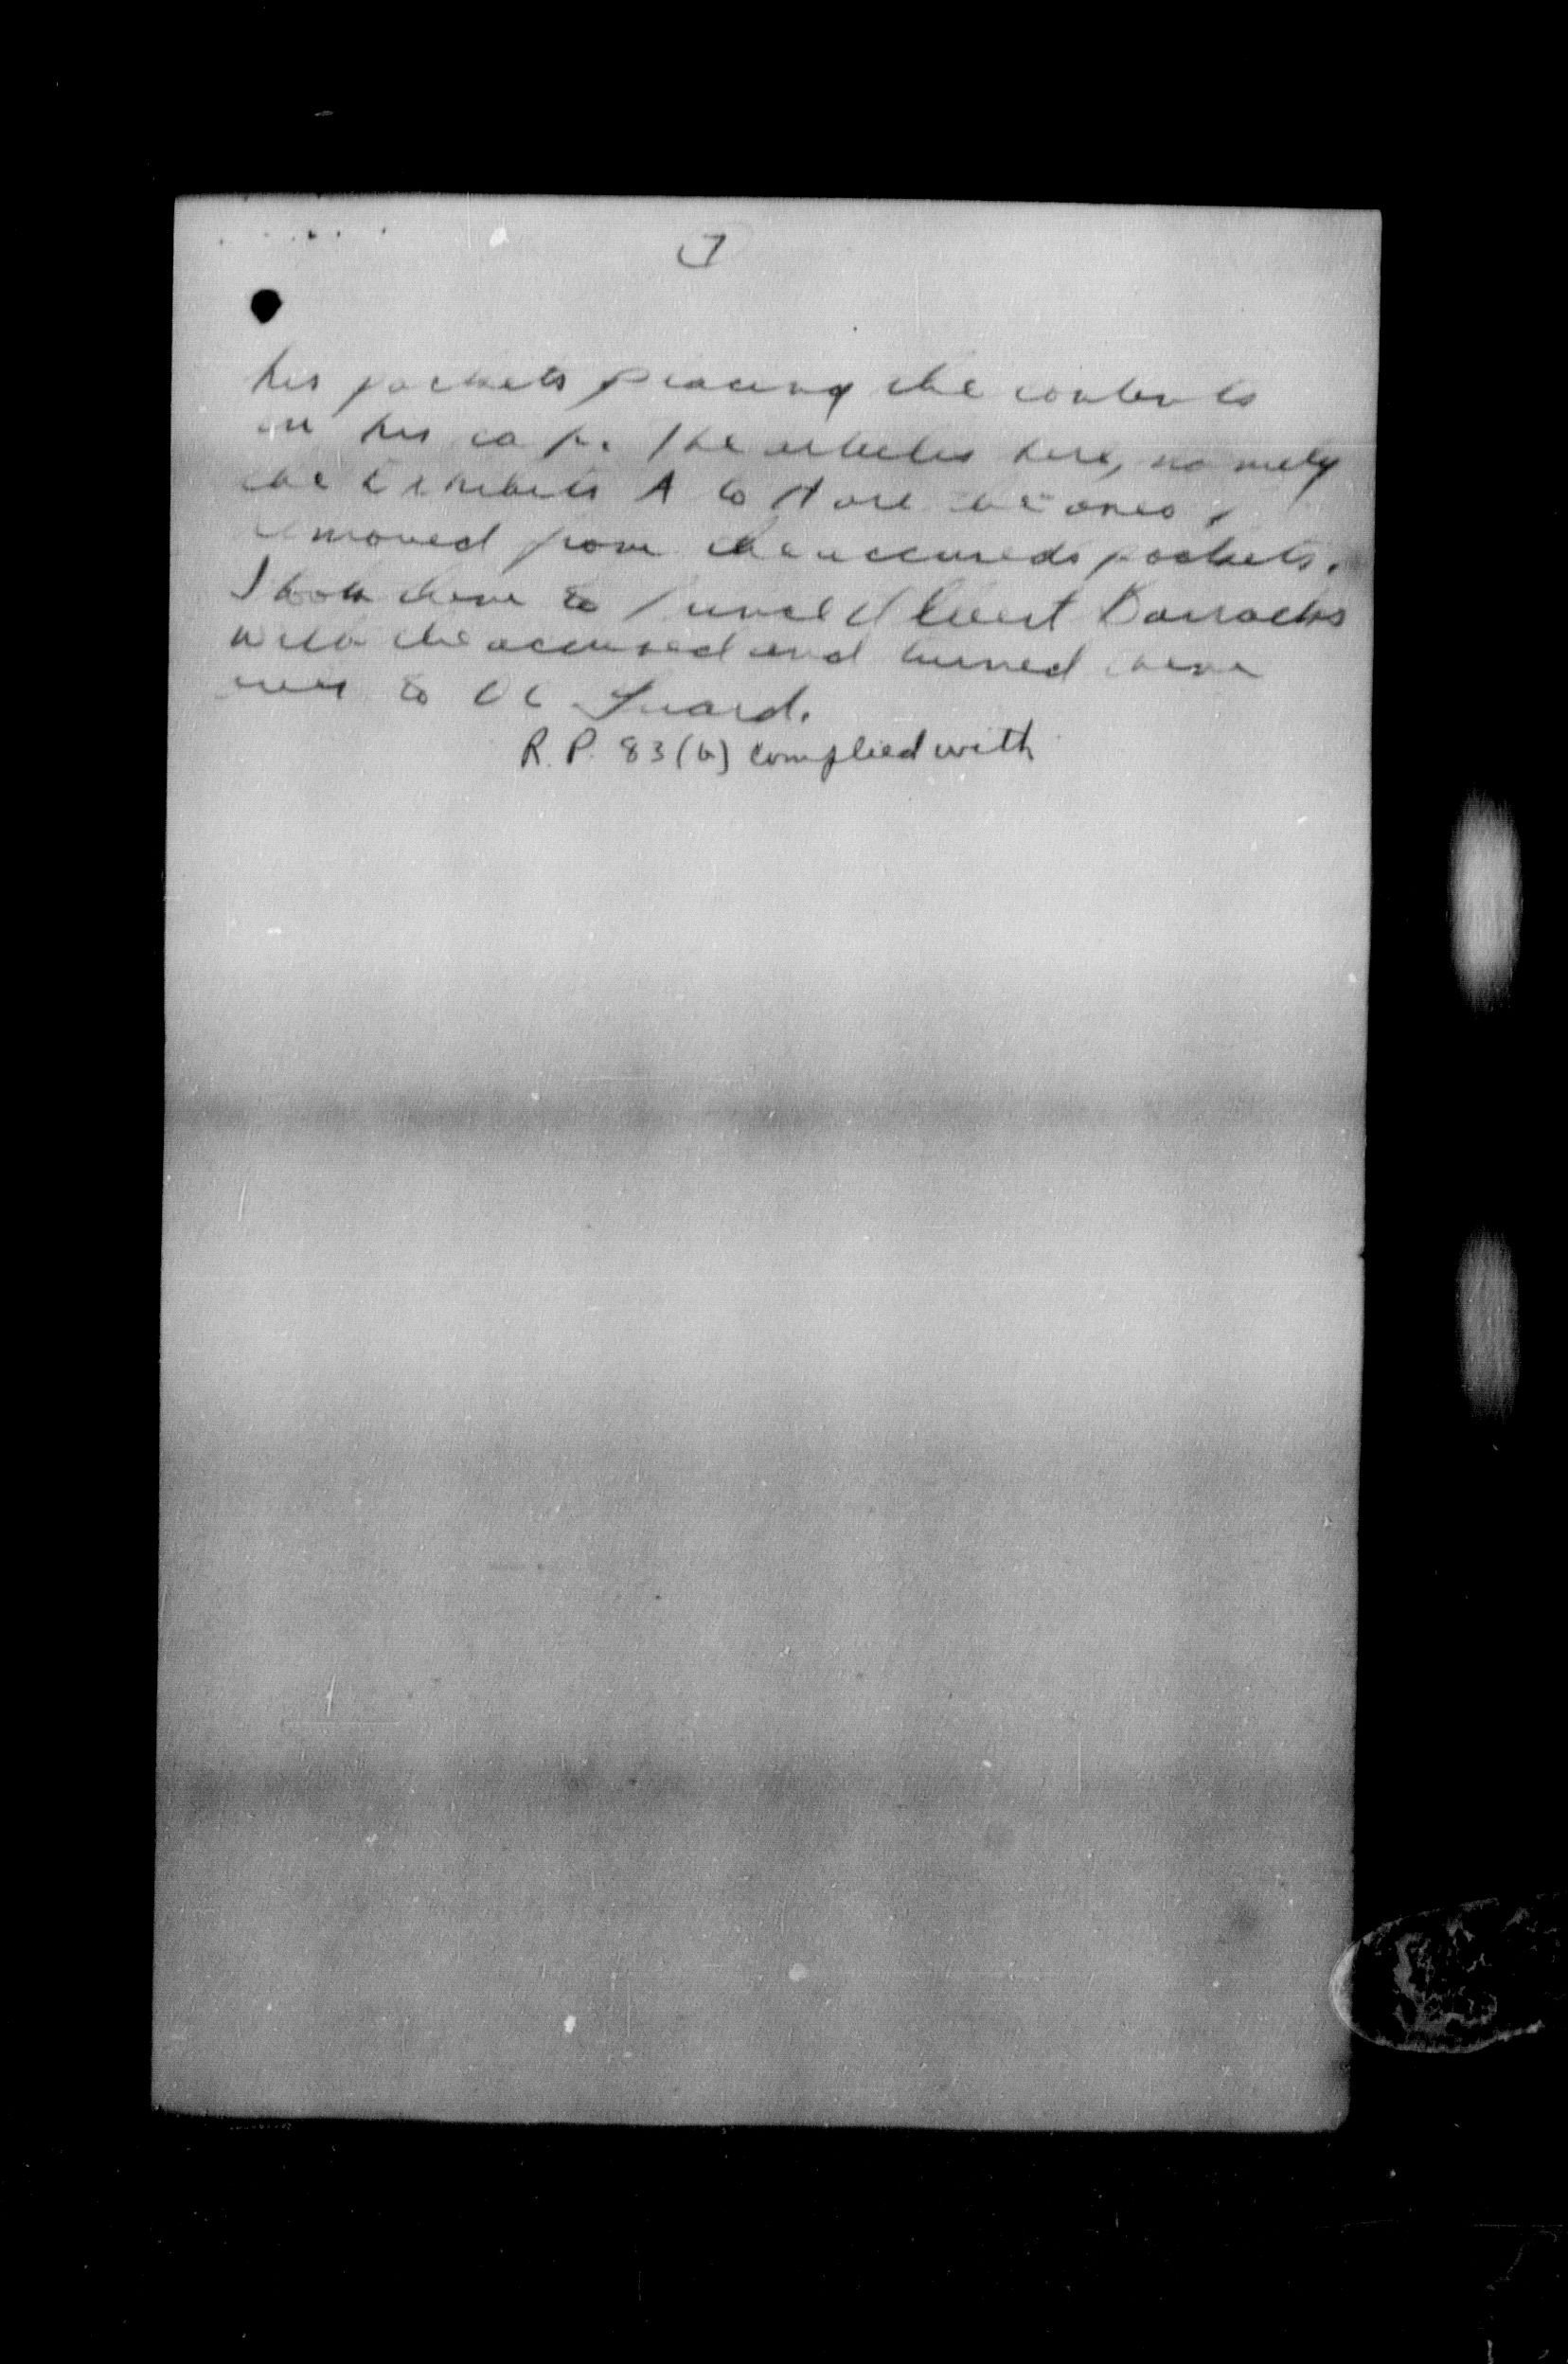 7
his pockets placing the contents
in his cap. The articles here, namely
the Exhibits A to H are the ones I
removed from the accuseds pockets.
I took them to Prince Albert Barracks
with the accused and turned them
over to OC Guard.
R.P. 83(b) complied with